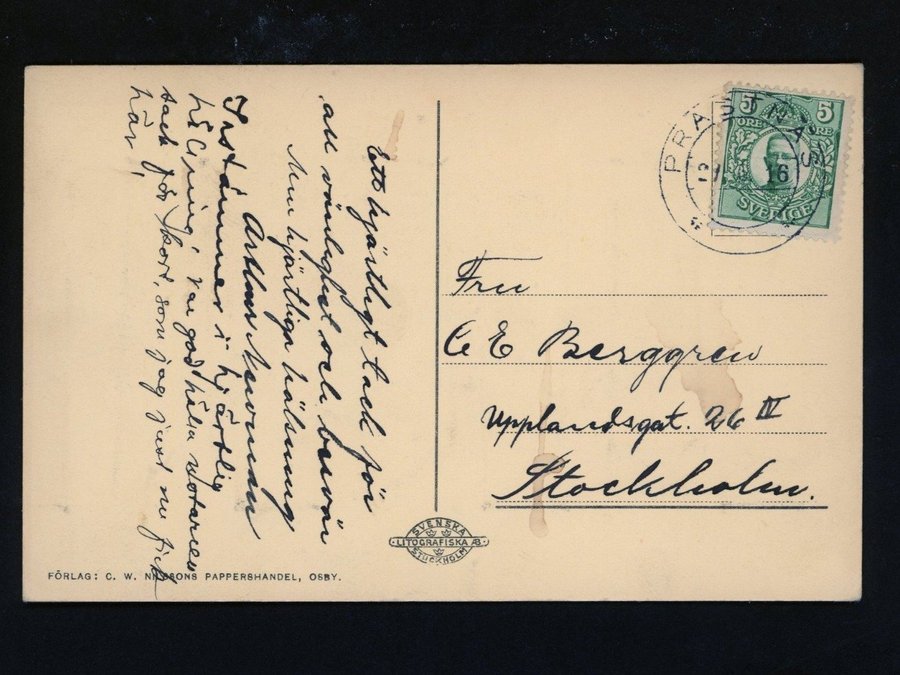 Ett hjärtligt tack för
all vänlighet och besvär
Min hjärtliga hälsning
Arthur
Instämmer i hjärtlig
hälsning, var god hälsa
tack för kort, som jag just nu fick
här,
PRÄSTNÄS
16
5 5
ÖRE ÖRE
SVERIGE
Fru
C E Berggren
Upplandsgat. 26 IV
Stockholm.
SVENSKA
LITOGRAFISKA AB.
STOCKHOLM
FÖRLAG: C. W. NILSSONS PAPPERSHANDEL, OSBY.